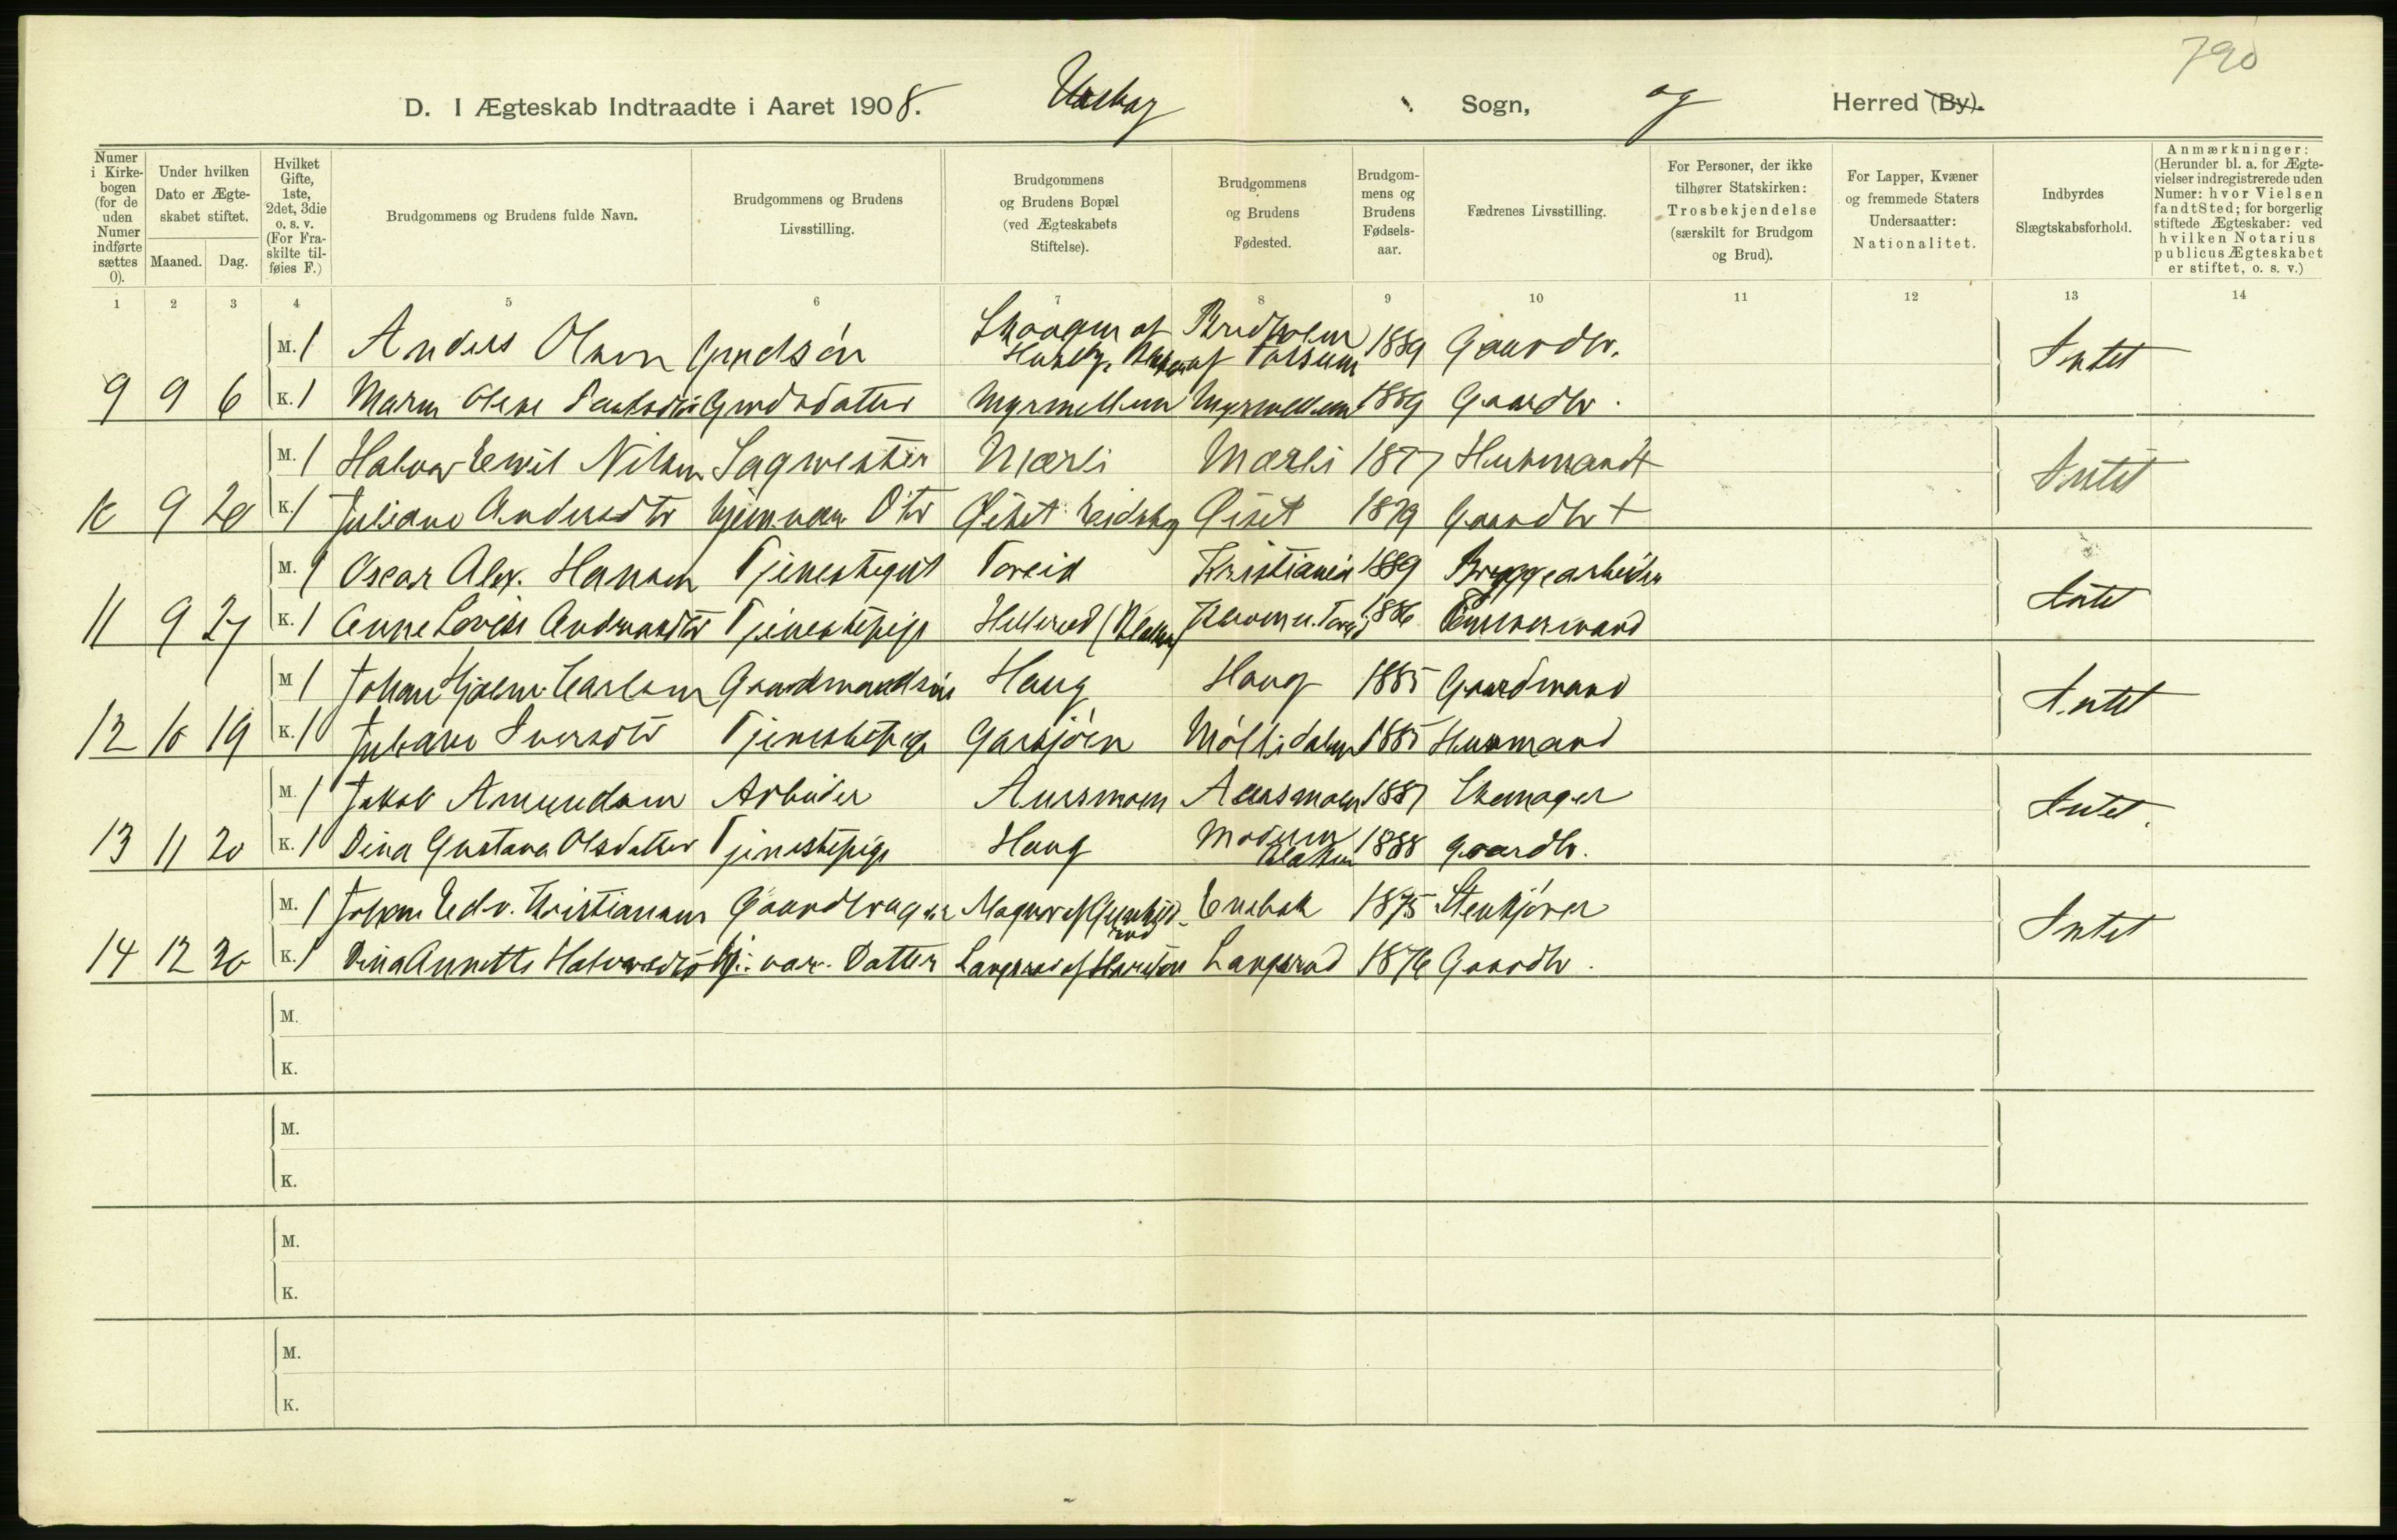 790
D. I Ægteskab Indtraadte i Aaret 1908. Sogn, og Herred (By).
Numer i Kirke- bogen (for de uden Numer indførte sættes 0).
Under hvilken Dato er Ægte- skabet stiftet.
Maaned. Dag.
Hvilket Gifte, 1ste, 2det, 3die o. s. v. (For Fra- skilte til- føies F.)
Brudgommens og Brudens fulde Navn.
Brudgommens og Brudens Livsstilling.
Brudgommens og Brudens Bopæl (ved Ægteskabets Stiftelse).
Brudgommens og Brudens Fødested.
Brudgom- mens og Brudens Fødsels- aar.
Fædrenes Livsstilling.
For Personer, der ikke tilhører Statskirken: Trosbekjendelse (særskilt for Brudgom og Brud).
For Lapper, Kvæner og fremmede Staters Undersaatter: Nationalitet.
Indbyrdes Slægtskabsforhold.
Anmærkninger: (Herunder bl. a. for Ægte- vielser indregistrerede uden Numer: hvor Vielsen fandt Sted; for borgerlig stiftede Ægteskaber: ved hvilken Notarius publicus Ægteskabet er stiftet, o. s. v.)
1 2 3 4 5 6 7 8 9 10 11 12 13 14
M. 1 Anders Olsen 1889 Gaardbr. Intet
9 9 6 K. 1 Maren Olene Myrmellem Myrmellem 1889 Gaardbr.
M. 1 Halvor Emil Nilsen Mærli Mærli 1877 Husmand + Intet
10 9 20 K. 1 Juliane Andersdtr 1879 Gaardbr +
M. 1 Oscar Alex. Hansen Tjenestegut Toreid Kristiania 1889 Bryggearbeider Intet
11 9 27 K. 1 Anne Lovise Tjenestepige Hellerud 1886 Tømmermand
M. 1 Johan Hjalm. Carlsen Gaardmandsøn Haug Haug 1885 Gaardmand Intet
12 10 19 K. 1 Juliane Iversdtr Tjenestepige Garsjøen 1885 Husmand
M. 1 Jakob Amundsen Arbeider Aursmoen Aursmoen 1887 Skomager Intet.
13 11 20 K. 1 Dina Gustava Olsdatter Tjenestepige Haug 1888 Gaardbr.
M. 1 Johan Edv. Kristiansen Gaardbruger Enebak 1875 Intet
14 12 30 K. 1 Dina Annette Halvorsdtr Hj. vær. Datter Langsrud 1876 Gaardbr.
M.
K.
M.
K.
M.
K.
M.
K.